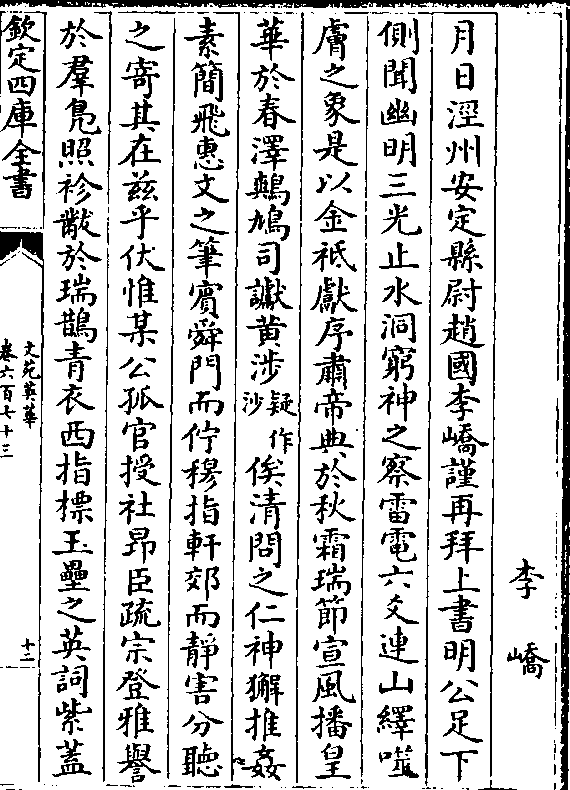 李嶠
月日涇州安定縣尉趙國李嶠謹再拜上書明公足下
側聞幽明三光止水洞窮神之察雷電六爻連山繹噬
膚之象是以金祗獻序肅帝典於秋霜瑞節宣風播皇
華於春澤鷞鳩司讞黄涉疑作沙俟清問之仁神獬推姦
素簡飛惠文之筆賔舜門而佇穆指軒郊而靜害分聽
之寄其在兹乎伏惟某公孤官授社昂臣疏宗登雅譽
於羣鳬照袗黻於瑞鵲青衣西指標玉壘之英詞紫蓋
欽定四庫全書
文苑英華
卷六百七十三
十二